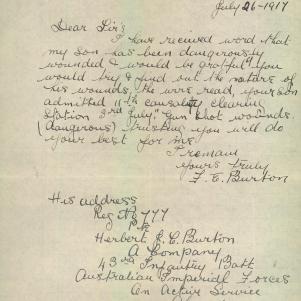 July 26-1917
Dear Sir's
I have received word that
my son has been dangerously
wounded & would be grateful if you
would try & find out the nature of
his wounds, the wire read, your son
admitted 11th casualty clearing
Station 3rd July "Gun shot wounds
(dangerous) Trusting you will do
your best for me
I remain
yours truly
F. E. Burton
His address
Reg No 777
Pte
Herbert E. C. Burton
A Company
43rd Infantry Batt
Australian Imperial Forces
On Active Service